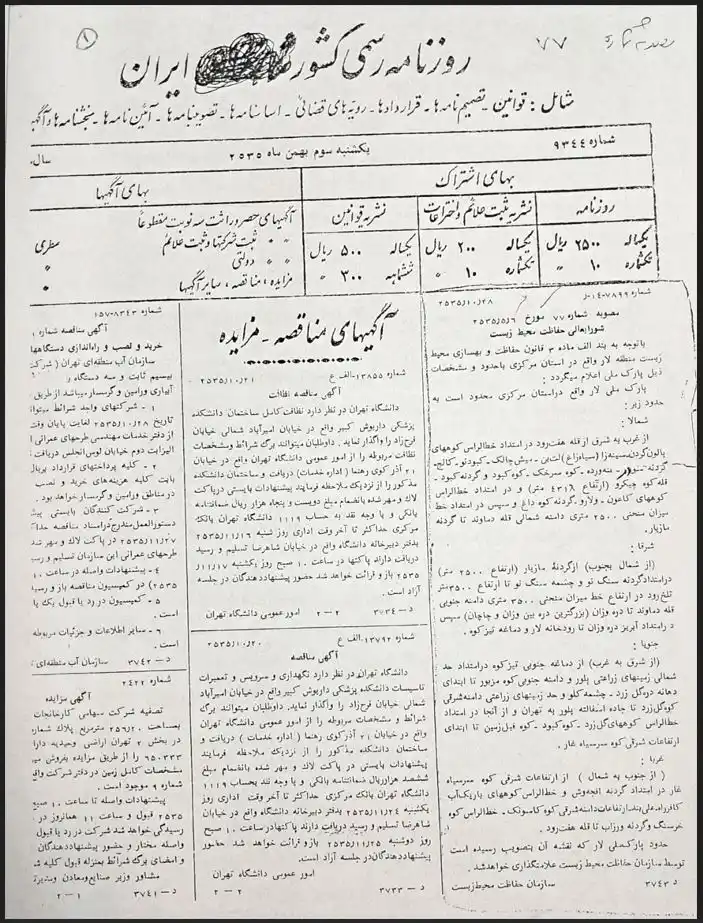 ۱
۷۷
روزنامه رسمی کشور ایران
شامل : قوانین - تصمیم نامه ها - قراردادها - رویه های قضائی - اساسنامه ها - تصویبنامه ها - آئین نامه ها - بخشنامه ها و آگهی
شماره ۹۳۴۴
یکشنبه سوم بهمن ماه ۲۵۳۵
سال
بهای اشتراک
بهای آگهیها
روزنامه
یکساله ۲۵۰۰ ریال
تکشماره ۱۰ »
نشریه ثبت علائم و اختراعات
یکساله ۲۰۰ ریال
تکشماره ۱۰ »
نشریه قوانین
یکساله ۵۰۰ ریال
ششماهه ۳۰۰ »
آگهیهای حصر وراثت سه نوبت مقطوعاً
» » ثبت شرکتها و ثبت علائم سطری
» » دولتی »
مزایده ، مناقصه ، سایر آگهیها »
شماره ۷۸۹۹-۱۴-ر ۲۵۳۵/۱۰/۲۸
مصوبه شماره ۷۷ مورخ ۲۵۳۵/۵/۶
شورایعالی حفاظت محیط زیست
باتوجه به بند الف ماده ۳ قانون حفاظت و بهسازی محیط
زیست منطقه لار واقع در استان مرکزی باحدود و مشخصات
ذیل پارک ملی اعلام میگردد :
پارک ملی لار واقع دراستان مرکزی محدود است به
حدود زیر :
شمالا :
از غرب به شرق از قله هفت‌رود در امتداد خط‌الراس کوههای
پالون‌گردن
گردنه
قله کوه چپکرو (ارتفاع ۴۳۱۶ متر) و در امتداد خط‌الراس
کوههای کاعون - ولارو گردنه کوه داغ و سپس در امتداد خط
میزان منحنی ۲۵۰۰ متری دامنه شمالی قله دماوند تا گردنه
مازیار.
شرقا :
(از شمال بجنوب) ازگردنهٔ مازیار (ارتفاع ۲۵۰۰ متر)
درامتدادگردنه سنگ نو و چشمه سنگ نو تا ارتفاع ۳۵۰۰متر
تلخ‌رود در ارتفاع خط میزان منحنی ۳۵۰۰ متری دامنه جنوبی
قله دماوند تا دره وزان (بزرگترین دره بین وزان و چاچان) سپس
در امتداد آبریز دره وزان تا رودخانه لار و دماغه تیزکوه.
جنوبا :
(از شرق به غرب) از دماغه جنوبی تیزکوه درامتداد حد
شمالی زمینهای زراعتی پلور و دامنه جنوبی‌کوه مزبور تا ابتدای
دهانه دره‌گل زرد - چشمه‌کلو و حد زمینهای زراعتی دامنه‌شرقی
کوه‌گل‌زرد تا جاده اسفالته پلور به تهران و از آنجا در امتداد
خط‌الراس کوههای‌گل‌زرد - کوه‌کبود - کوه قبل‌زمین تا ابتدای
ارتفاعات شرقی کوه سرسیاه غار.
غربا :
( از جنوب به شمال ) از ارتفاعات شرقی کوه سرسیاه
غار در امتداد گردنه افجه‌وش و خط‌الراس کوههای باریک‌آب
خرسنگ وگردنه ورزاب تا قله هفت‌رود.
حدود پارک ملی لار که نقشه آن بتصویب رسیده است
توسط سازمان حفاظت محیط زیست علامتگذاری خواهدشد.
د - ۳۷۴۳ سازمان حفاظت محیط‌زیست
آگهیهای مناقصه - مزایده
شماره ۱۳۸۵۵-الف ع ۲۵۳۵/۱۰/۲۱
آگهی مناقصه نظافت
دانشگاه تهران در نظر دارد نظافت کامل ساختمان دانشکده
پزشکی داریوش کبیر واقع در خیابان امیرآباد شمالی خیابان
فرح‌زاد را واگذار نماید . داوطلبان میتوانند برگ شرائط ومشخصات
نظافت مربوطه را از امور عمومی دانشگاه تهران واقع در خیابان
۲۱ آذر کوی رهنما ( اداره خدمات ) دریافت و ساختمان دانشکده
مذکور را از نزدیک ملاحظه فرمایند پیشنهادات بایستی درپاکت
لاک و مهر شده بانضمام مبلغ دویست و پنجاه هزار ریال ضمانتنامه
بانکی و یا وجه نقد به حساب ۱۱۱۹ دانشگاه تهران بانک
مرکزی حداکثر تا آخر وقت اداری روز شنبه ۲۵۳۵/۱۱/۱۶
بدفتر دبیرخانه دانشگاه واقع در خیابان شاهرضا تسلیم و رسید
دریافت دارند پاکتها در ساعت ۱۰ صبح روز یکشنبه ۱۱/۱۷/
۲۵۳۵ باز و قرائت خواهد شد حضور پیشنهاددهندگان در جلسه
آزاد است .
د - ۳۷۳۴ ۲ - ۲ امور عمومی دانشگاه تهران
شماره ۱۳۷۹۲-الف ع ۲۵۳۵/۱۰/۲۰
آگهی مناقصه
دانشگاه تهران در نظر دارد نگهداری و سرویس و تعمیرات
تاسیسات دانشکده پزشکی داریوش کبیر واقع در خیابان امیرآباد
شمالی خیابان فرح‌زاد را واگذار نماید. داوطلبان میتوانند برگ
شرائط و مشخصات مربوطه را از امور عمومی دانشگاه تهران
واقع در خیابان ۲۱ آذر کوی رهنما ( اداره خدمات ) دریافت و
ساختمان دانشکده مذکور را از نزدیک ملاحظه فرمایند
پیشنهادات بایستی در پاکت لاک و مهر شده بانضمام مبلغ
ششصد هزارریال ضمانتنامه بانکی و یا وجه نقد بحساب ۱۱۱۹
دانشگاه تهران بانک مرکزی حداکثر تا آخر وقت اداری روز
یکشنبه ۲۵۳۵/۱۱/۲۴ بدفتر دبیرخانه دانشگاه واقع در خیابان
شاهرضا تسلیم و رسید دریافت دارند پاکتها در ساعت ۱۰ صبح
روز دوشنبه ۲۵۳۵/۱۱/۲۵ باز و قرائت خواهد شد حضور
پیشنهاد دهندگان در جلسه آزاد است.
امور عمومی دانشگاه تهران
د - ۳۷۳۳ ۲ - ۲
شماره ۸۳۴۳-۱۵۷
آگهی مناقصه شماره ۱
خرید و نصب و راه‌اندازی دستگاهها
سازمان آب منطقه‌ای تهران ( شرکت
بیسیم ثابت و سه دستگاه
آبیاری ورامین و گرمسار میباشد از طریق
۱ - شرکتهای واجد شرائط میتوانند
تاریخ ۲۵۳۵/۱۰/۲۸ لغایت پایان وقت
از دفتر خدمات مهندسی طرحهای عمرانی
الیزابت دوم خیابان لوس‌آنجلس دریافت
۲ - کلیه پرداختهای قرارداد بریال
بابت کلیه هزینه‌های خرید و نصب
در مناطق ورامین و گرمسار خواهد بود .
۳ - شرکت کنندگان بایستی
دستورالعمل مندرج در اسناد مناقصه حداکثر
۲۵۳۵/۱۱/۲۷ در پاکت لاک و مهر شده
طرحهای عمرانی این سازمان تسلیم و رسید
۴ - پیشنهادات واصله در ساعت ۱۰
۲۵۳۵) در کمیسیون مناقصه باز و رسید
۵ - کمیسیون در رد یا قبول یک یا
است .
۶ - سایر اطلاعات و جزئیات مربوطه
است .
د - ۳۷۴۲ سازمان آب منطقه‌ای
شماره ۲۴۲۲
آگهی مزایده
تصفیه شرکت سهامی کارخانجات
بمساحت ۲۵۹/۲۰ مترمربع پلاک شماره
در بخش ۲ تهران اراضی وحیدیه دارای
۶۵۰۳۳۳ را از طریق مزایده بفروش
مشخصات کامل زمین در دفتر شرکت واقع
شماره ۹ موجود است .
پیشنهادات واصله تا ساعت ۱۰ صبح
۲۵۳۵ قبول و ساعت ۱۱ همانروز در
رسیدگی خواهد شد شرکت در رد یا قبول
واصله مختار و حضور پیشنهاد دهندگان
و امضای برگ شرائط بمنزله قبول کلیه
مشاور وزیر صنایع‌ومعادن
د - ۳۷۴۱ ۲ - ۱